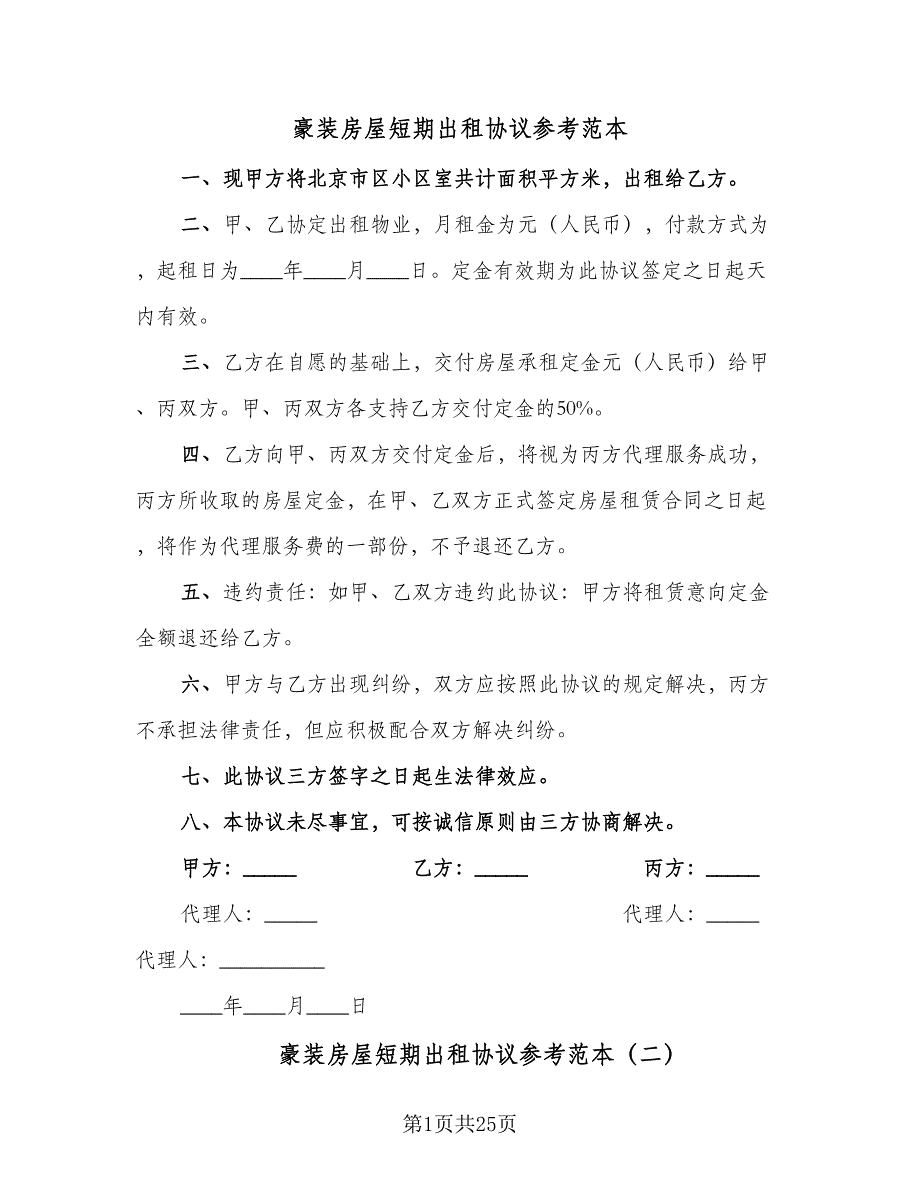 豪装房屋短期出租协议参考范本
一、现甲方将北京市区小区室共计面积平方米，出租给乙方。
二、甲、乙协定出租物业，月租金为元（人民币），付款方式为
，起租日为____年____月____日。定金有效期为此协议签定之日起天
内有效。
三、乙方在自愿的基础上，交付房屋承租定金元（人民币）给甲
、丙双方。甲、丙双方各支持乙方交付定金的50%。
四、乙方向甲、丙双方交付定金后，将视为丙方代理服务成功，
丙方所收取的房屋定金，在甲、乙双方正式签定房屋租赁合同之日起
，将作为代理服务费的一部份，不予退还乙方。
五、违约责任：如甲、乙双方违约此协议：甲方将租赁意向定金
全额退还给乙方。
六、甲方与乙方出现纠纷，双方应按照此协议的规定解决，丙方
不承担法律责任，但应积极配合双方解决纠纷。
七、此协议三方签字之日起生法律效应。
八、本协议未尽事宜，可按诚信原则由三方协商解决。
甲方：_____ 乙方：_____ 丙方：_____
代理人：_____ 代理人：_____
代理人：__________
____年____月____日
豪装房屋短期出租协议参考范本（二）
第1页共25页